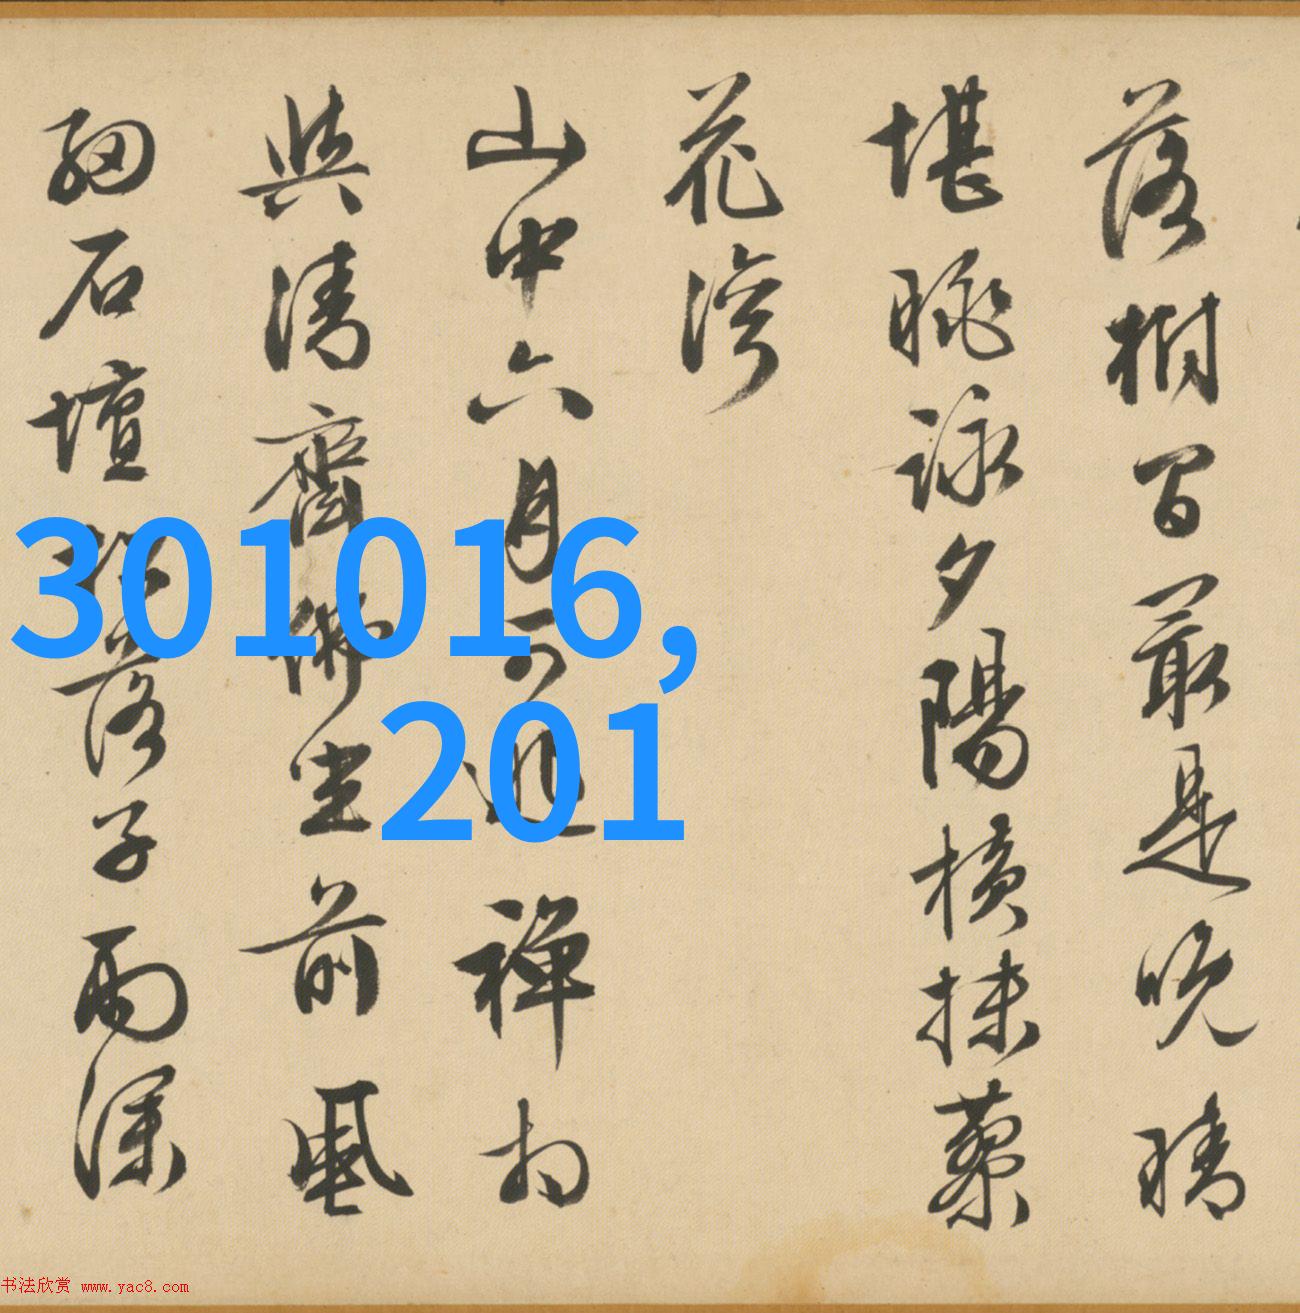 落樹間最是晚晴
堪眺詠夕陽橫抹藥
花灣
山中六月可逃禪相
與清齋佛坐前風
細石壇松落子雨深
301016,
201
书法欣赏 www.yac8.com